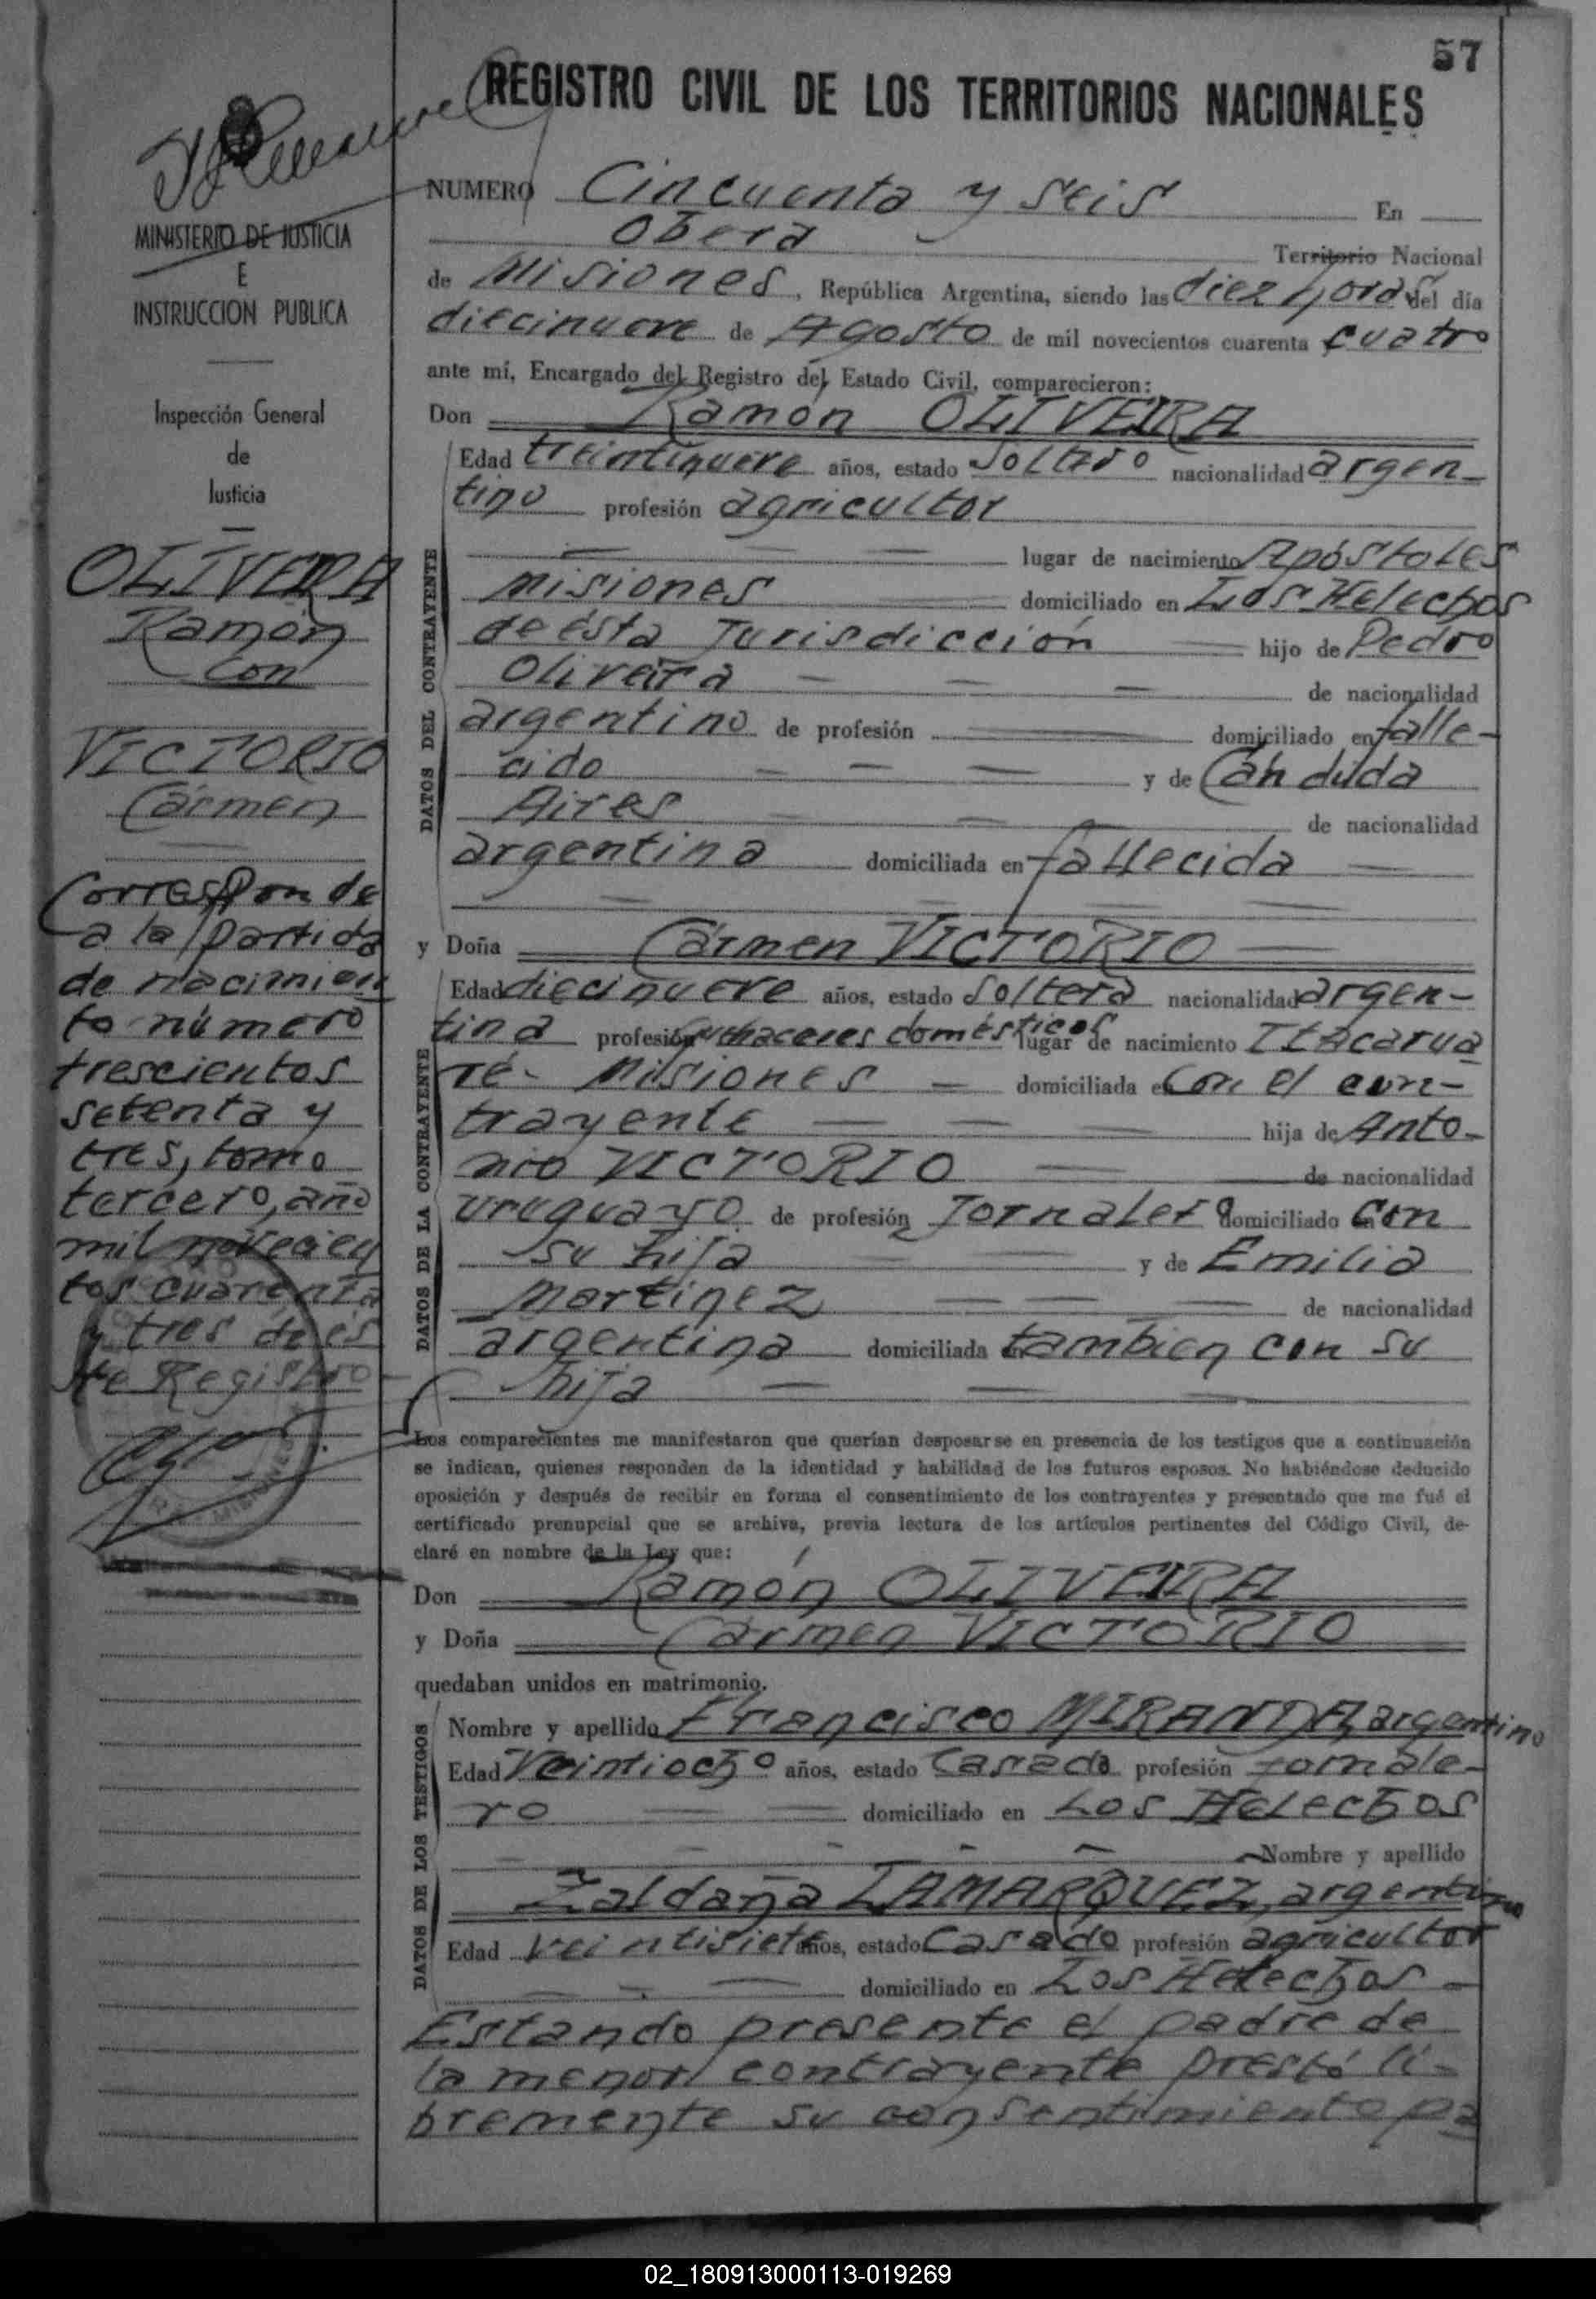 57
REGISTRO CIVIL DE LOS TERRITORIOS NACIONALES
MINISTERIO DE JUSTICIA
E
INSTRUCCION PUBLICA
Inspección General
de
Justicia
OLIVEIRA
Ramón
con
VICTORIO
Cármen
Corresponde
a la partida
de nacimien
to número
trescientos
setenta y
tres, tomo
tercero, año
mil novecien
tos cuarenta
y tres de és
te Registro
NUMERO Cincuenta y seis En
Oberá Territorio Nacional
de Misiones, República Argentina, siendo las diez horas del día
diecinueve de Agosto de mil novecientos cuarenta cuatro
ante mí, Encargado del Registro del Estado Civil, comparecieron:
Don Ramón OLIVEIRA
DATOS DEL CONTRAYENTE
Edad treintinueve años, estado soltero nacionalidad argen-
tino profesión agricultor
lugar de nacimiento Apóstoles
Misiones domiciliado en Los Helechos
de ésta Jurisdicción hijo de Pedro
Oliveira de nacionalidad
argentino de profesión domiciliado en falle-
cido y de Cánduda
Aires de nacionalidad
argentina domiciliada en fallecida
y Doña Cármen VICTORIO
DATOS DE LA CONTRAYENTE
Edad diecinueve años, estado soltera nacionalidad argen-
tina profesión quehaceres domésticos lugar de nacimiento Itacarua
ré- Misiones domiciliada en con el con-
trayente hija de Anto-
nio VICTORIO de nacionalidad
uruguayo de profesión Jornalero domiciliado con
su hija y de Emilia
Martinez de nacionalidad
argentina domiciliada tambien con su
hija
Los comparecientes me manifestaron que querían desposarse en presencia de los testigos que a continuación
se indican, quienes responden de la identidad y habilidad de los futuros esposos. No habiéndose deducido
oposición y después de recibir en forma el consentimiento de los contrayentes y presentado que me fué el
certificado prenupcial que se archiva, previa lectura de los artículos pertinentes del Código Civil, de-
claré en nombre de la Ley que:
Don Ramón OLIVEIRA
y Doña Cármen VICTORIO
quedaban unidos en matrimonio.
DATOS DE LOS TESTIGOS
Nombre y apellido Francisco MIRANDA, argentino
Edad Veintiocho años, estado Casado profesión jornale-
ro domiciliado en Los Helechos
Nombre y apellido
Zaldaña LAMARQUEZ, argentino
Edad Veintisiete años, estado Casado profesión agricultor
domiciliado en Los Helechos
Estando presente el padre de
la menor contrayente prestó li-
bremente su consentimiento pa
02_180913000113-019269